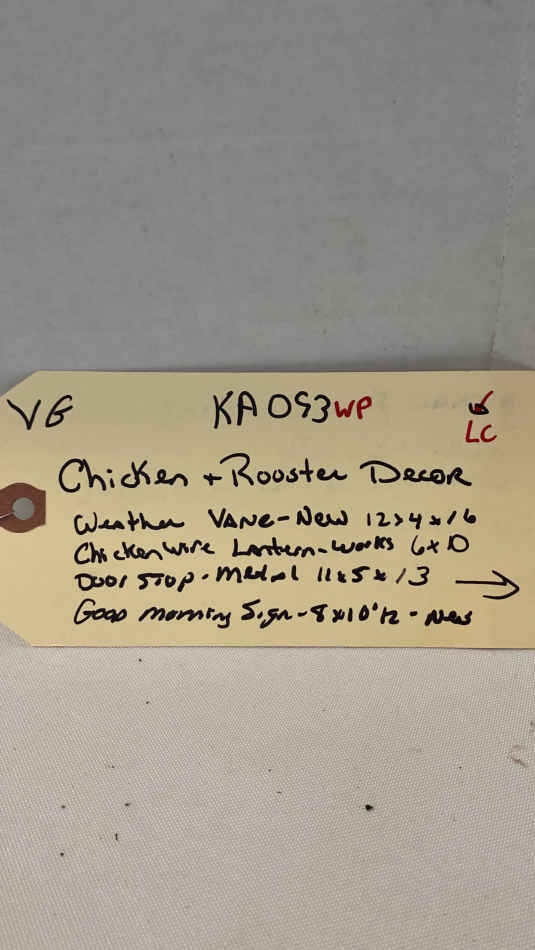 VG KA053 WP
LC
Chicken + Rooster Decor
Weather Vane - New 12x4x16
Chickenwire Lantern - works 6x10
Door Stop - Metal 11x5x13 →
Good morning Sign - 8x10½ - New